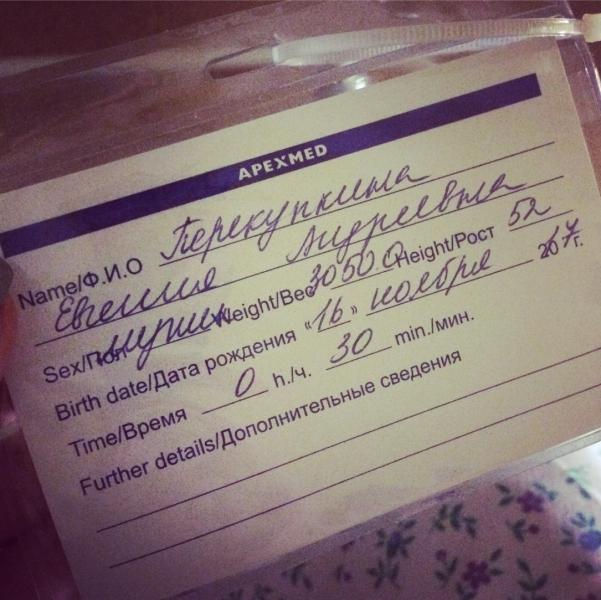 APEXMED
Name/Ф.И.О Перекупкина
Евгения Андреевна
Sex/Пол Weight/Вес 3050 Height/Рост 52
Birth date/Дата рождения «16» ноября г.
Time/Время 0 h./ч. 30 min./мин.
Further details/Дополнительные сведения